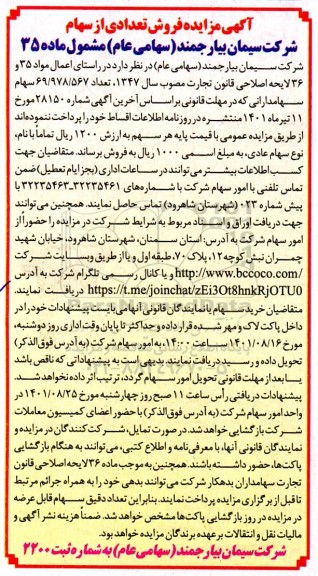 آگهی مزایده فروش تعدادی از سهام
شرکت سیمان بیارجمند (سهامی عام) مشمول ماده ۳۵
شرکت سیمان بیارجمند (سهامی عام) در نظر دارد در راستای اعمال مواد ۳۵ و
۳۶ لایحه اصلاحی قانون تجارت مصوب سال ۱۳۴۷، تعداد ۶۹/۹۷۸/۵۶۷ سهام
سهامدارانی که در مهلت قانونی بر اساس آخرین آگهی شماره ۲۸۱۵۰ مورخ
۱۱ تیرماه ۱۴۰۱ منتشره در روزنامه اطلاعات اقساط خود را پرداخت ننموده‌اند
از طریق مزایده عمومی با قیمت پایه هر سهم به ارزش ۱۲۰۰ ریال تماماً بانام،
نوع سهام عادی، به مبلغ اسمی ۱۰۰۰ ریال به فروش برساند. متقاضیان جهت
کسب اطلاعات بیشتر می‌توانند در ساعات اداری (بجز ایام تعطیل) ضمن
تماس تلفنی با امور سهام شرکت با شماره‌های ۳۲۲۳۵۴۶۱-۳۲۲۳۵۴۶۳ با
پیش شماره ۰۲۳ (شهرستان شاهرود) تماس حاصل نمایند. همچنین می‌توانند
جهت دریافت اوراق و اسناد مربوط به شرایط شرکت در مزایده را حضوراً از
امور سهام شرکت به آدرس: استان سمنان، شهرستان شاهرود، خیابان شهید
چمران نبش کوچه ۱۲، پلاک ۷۰، طبقه اول و یا از طریق وبسایت شرکت
http://www.bccoco.com/ و یا کانال رسمی تلگرام شرکت به آدرس
https://t.me/joinchat/zEi3Ot8hnkRjOTU0 دریافت نمایند.
متقاضیان خرید سهام یا نمایندگان قانونی آنها می‌بایست پیشنهادات خود را در
داخل پاکت لاک و مهر شده قرار داده و حداکثر تا پایان وقت اداری روز دوشنبه،
مورخ ۱۴۰۱/۰۸/۱۶ ساعت ۱۴:۰۰، به امور سهام شرکت (به آدرس فوق الذکر)
تحویل داده و رسید دریافت نمایند. بدیهی است به پیشنهاداتی که ناقص باشد
یا بعد از مهلت قانونی تحویل امور سهام گردد، ترتیب اثر داده نخواهد شد.
پیشنهادات دریافتی رأس ساعت ۱۱ صبح روز چهارشنبه مورخ ۱۴۰۱/۰۸/۲۵ در
واحد امور سهام شرکت (به آدرس فوق الذکر) با حضور اعضای کمیسیون معاملات
شرکت بازگشایی خواهد شد. در صورت تمایل، شرکت‌کنندگان در مزایده و
نمایندگان قانونی آنها، با معرفی‌نامه و اطلاع کتبی، می‌توانند به هنگام بازگشایی
پاکت‌ها، حضور داشته باشند. همچنین به موجب ماده ۳۶ لایحه اصلاحی قانون
تجارت سهامداران بدهکار شرکت می‌توانند بدهی خود را به همراه جرائم مرتبط
تا قبل از برگزاری مزایده پرداخت نمایند. بنابراین تعداد دقیق سهام قابل عرضه
در مزایده در روز بازگشایی پاکت‌ها مشخص خواهد شد. ضمناً هزینه نشر آگهی و
مالیات نقل و انتقالات بر عهده برندگان مزایده خواهد بود.
شرکت سیمان بیارجمند (سهامی عام) به شماره ثبت ۲۲۰۰